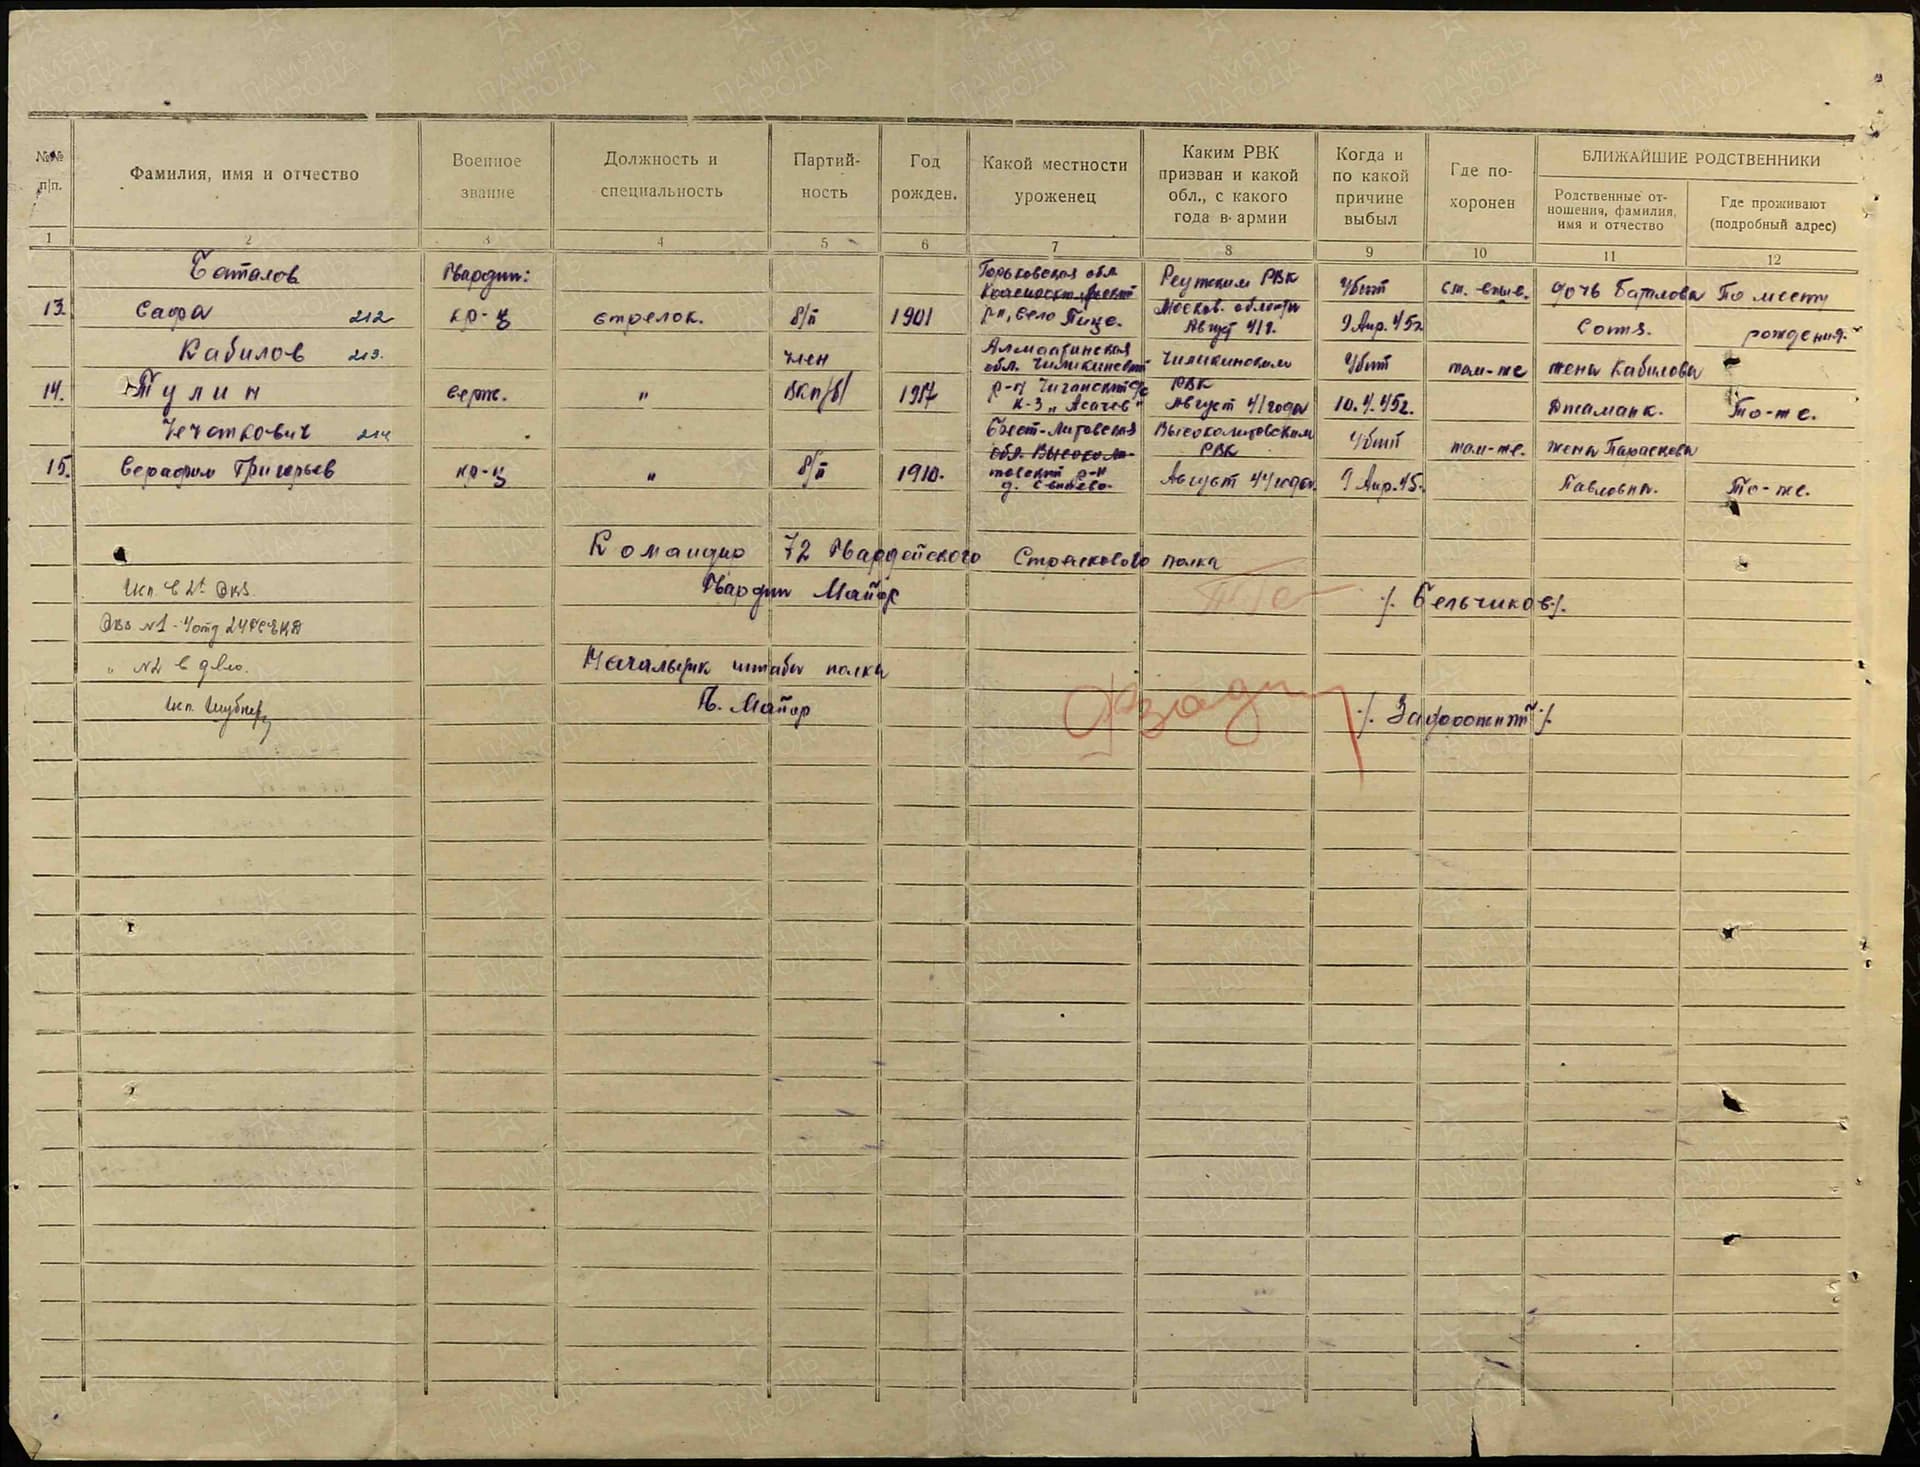 №№ п/п.
Фамилия, имя и отчество
Военное звание
Должность и специальность
Партий-ность
Год рожден.
Какой местности уроженец
Каким РВК призван и какой обл., с какого года в армии
Когда и по какой причине выбыл
Где по-хоронен
БЛИЖАЙШИЕ РОДСТВЕННИКИ
Родственные от-ношения, фамилия, имя и отчество
Где проживают (подробный адрес)
1 2 3 4 5 6 7 8 9 10 11 12
Баталов Гвардии: Горьковская обл Реутским РВК Убит дочь Баталова По месту
13. Сафа 212 кр-ц стрелок. б/п 1901 р-н, село Пица. Москов. области Август 41г. 9 Апр. 45г рождения.
Кабилов 213. член Алмаатинская обл. Чиликинский Чиликинским Убит там-же жена Кабилова
14. Тулин серж. " ВКП/б/ 1917 р-н РВК Август 41 года 10.4.45г. Джаманк. То-же.
Чечоткович 214 Брест-Литовская Высоколитовским Убит там-же. жена Параскова
15. Серафим Григорьев кр-ц " б/п 1910. товский р-н РВК Август 44 года. 9 Апр. 45. Павловна. То-же.
Командир 72 Гвардейского Стрелкового полка
Исп. в 2х экз. Гвардии Майор /. Бельчиков /.
Экз №1 - 4отд 24
" №2 в дело. Начальник штаба полка
Исп. Гв. Майор
ПАМЯТЬ НАРОДА